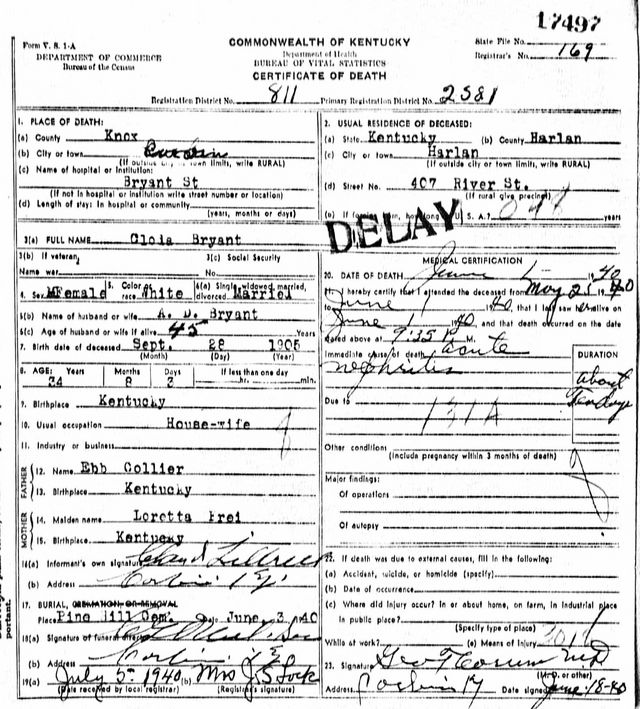 17497
Form V. S. 1-A
DEPARTMENT OF COMMERCE
Bureau of the Census
COMMONWEALTH OF KENTUCKY
Department of Health
BUREAU OF VITAL STATISTICS
CERTIFICATE OF DEATH
State File No.
Registrar's No. 169
Registration District No. 811 Primary Registration District No. 2381
1. PLACE OF DEATH:
(a) County Knox
(b) City or town
(If outside city or town limits, write RURAL)
(c) Name of hospital or institution:
Bryant St
(If not in hospital or institution write street number or location)
(d) Length of stay: In hospital or community
(years, months or days)
2. USUAL RESIDENCE OF DECEASED:
(a) State Kentucky (b) County Harlan
(c) City or town Harlan
(If outside city or town limits, write RURAL)
(d) Street No. 407 River St.
(If rural give precinct)
(e) If foreign born, how long in U. S. A.? years
DELAY
3(a) FULL NAME Cloia Bryant
3(b) If veteran, 3(c) Social Security
Name war No.
4. Sex Female 5. Color or race White 6(a) Single, widowed, married, divorced Married
6(b) Name of husband or wife A. D. Bryant
6(c) Age of husband or wife if alive 45 Years
7. Birth date of deceased Sept. 28 1905
(Month) (Day) (Year)
8. AGE: Years Months Days If less than one day
34 8 3 hr. min.
9. Birthplace Kentucky
10. Usual occupation House-wife
11. Industry or business
FATHER
12. Name Ebb Collier
13. Birthplace Kentucky
MOTHER
14. Maiden name Loretta Frei
15. Birthplace Kentucky
16(a) Informant's own signature
(b) Address Corbin Ky
17. BURIAL, CREMATION, OR REMOVAL
Place Pine Hill Cem. Date June, 3 1940
18(a) Signature of funeral director
(b) Address Corbin Ky
19(a) July 5 1940 (b) Mrs J. S. Lock
(Date received by local registrar) (Registrar's signature)
MEDICAL CERTIFICATION
20. DATE OF DEATH June 1 1940
21. I hereby certify that I attended the deceased from May 25 1940
to June 1 1940, that I last saw alive on
June 1 1940, and that death occurred on the date
stated above at 9:35 P. M.
Immediate cause of death acute
nephritis
DURATION
about
Ten days
Due to 131A
Other conditions
(Include pregnancy within 3 months of death)
Major findings:
Of operations
Of autopsy
22. If death was due to external causes, fill in the following:
(a) Accident, suicide, or homicide (specify)
(b) Date of occurrence
(c) Where did injury occur? In or about home, on farm, in industrial place
in public place?
(Specify type of place)
While at work? (e) Means of injury
23. Signature Geo T Corum MD
(M.D. or other)
Address Corbin Ky Date signed June-18-40
portant.